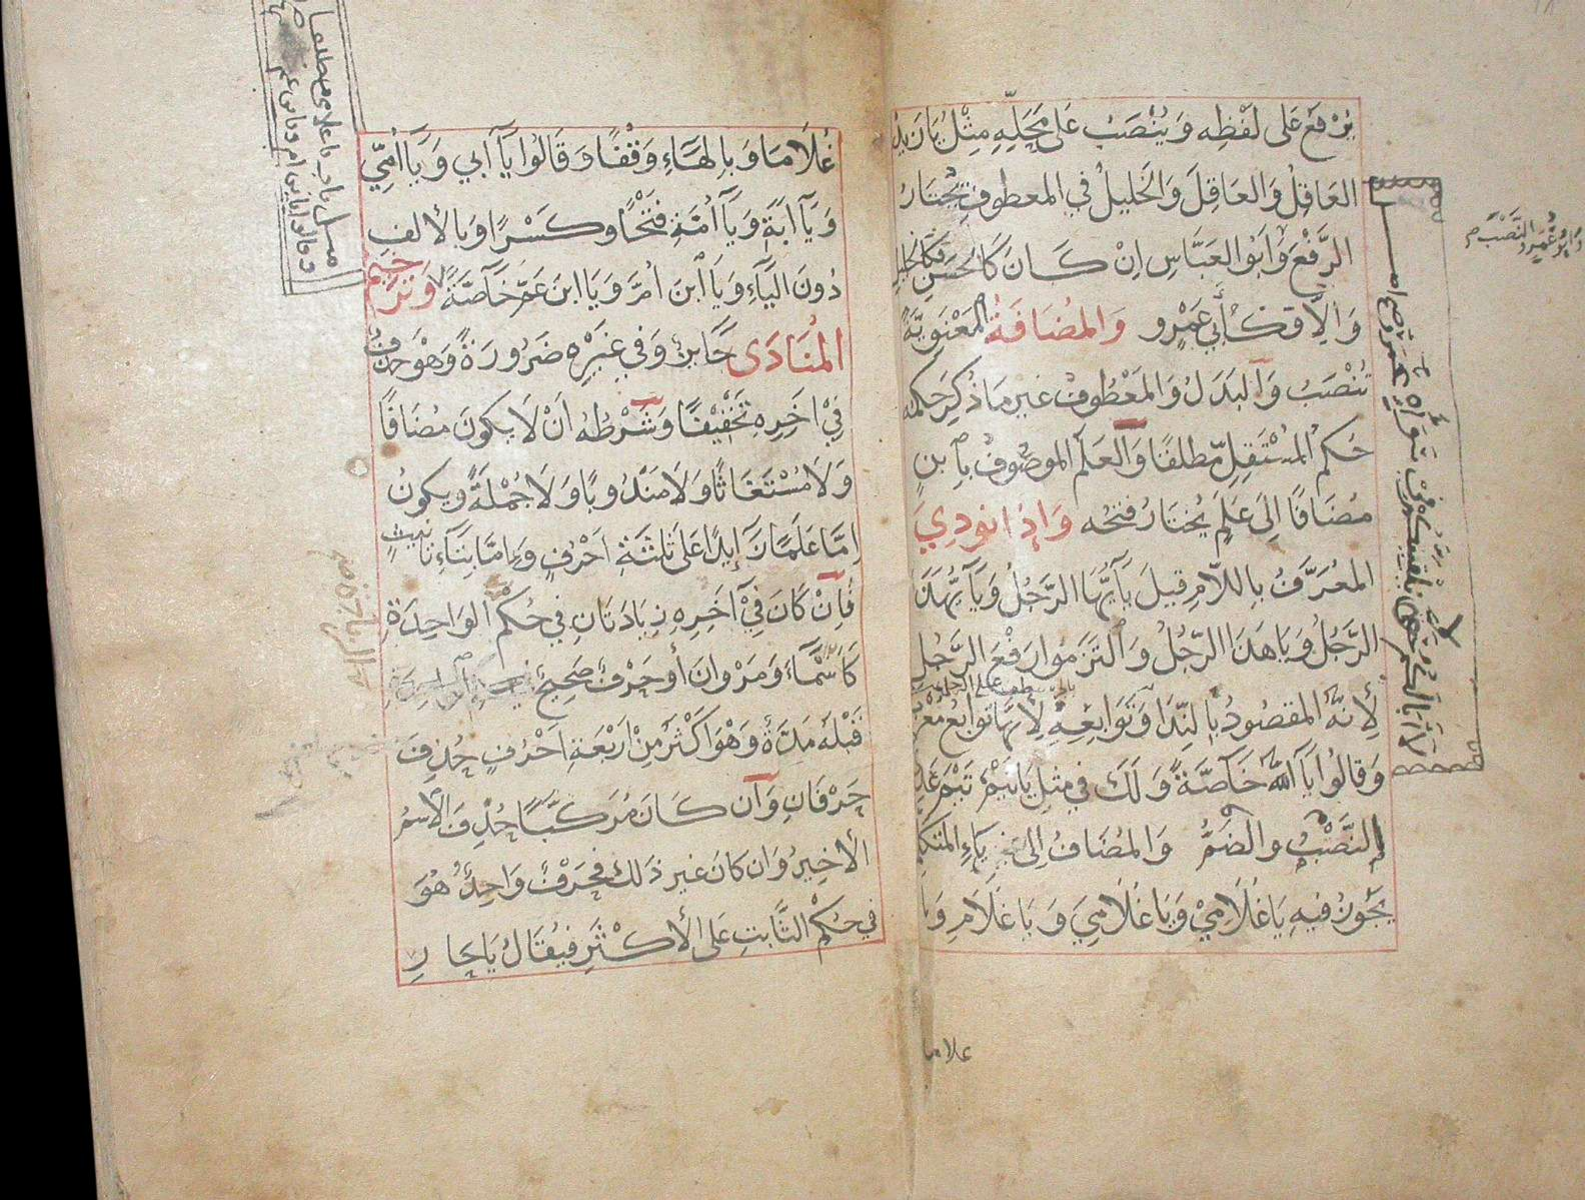 يُرْفَعُ عَلَى لَفْظِهِ وَيُنْصَبُ عَلَى مَحَلِّهِ مِثْلُ يَازَيدُ
العَاقِلُ وَالعَاقِلَ وَالخَلِيلُ فِي المعطوفِ يَخْتَارُ
الرَّفْعَ وَأَبُو العَبَّاسِ اِنْ كَانَ كَالحَسَنِ فَكَالخَلِيلِ
وَاِلاَّ فَكَأَبِي عَمْرٍو وَالمُضَافَةُ المَعْنَوِيَّةُ
تُنْصَبُ وَالبَدَلُ وَالمَعْطُوفُ غَيْرِ مَا ذُكِرَ حُكمُهُ
حُكمُ المُسْتَقِلِّ مطلقًا وَالعَلَمُ الموصُوفُ بِابنٍ
مُضَافًا اِلَى عَلَمٍ يُختَارُ فتحُه وَاِذَا نودِيَ
المُعَرَّفُ بِاللاَّمِ قِيلَ يَآأَيُّهَا الرَّجُلُ وَيَآأَيُّهَذَا
الرَّجُلُ وَيَاهَذَا الرَّجُلُ وَالتَزَمَوا رَفْعَ الرَّجُلِ
لِأَنَّهُ المقصُودُ بِالنِّدَا وَتَوَابِعِهِ لِأَنَّهَا تَوَابِعُ مُعْرَبٍ
وَقَالُوا يَآاللهُ خَآصَّةً وَلَكَ فِي مِثلِ يَاتَيْمُ تَيْمَ عَدِيٍّ
النَّصْبُ والضَّمُّ وَالمُضَافُ اِلَى يَاءِ المتَكَلِّمِ
يَجُوزُ فيهِ يَاغُلَامِيْ وَيَاغُلَامِيَ وَيَاغُلَامِ وَيَا
غلاما
وَأَبُو عُمَرَ وَالنَّصْبَ
غُلَامَا وَبِالهَآءِ وَقْفًا وَقَالُوا يَآأَبِي وَيَآأُمِّي
وَيَآاَبَةَِ وَيَآأُمَّةَِ فَتْحًا وكَسْرًا وَبِالأَلِفِ
دُونَ اليَآءِ وَيَاَابْنَ اُمَّ وَيَاابنَ عَمَّ خَآصَّةً وَتَرخِيمُ
المُنَادَى جَآئِزٌ وَفِي غَيْرِهِ ضَرُورَةً وَهْوَ حَذْفٌ
فِيْ اخِرِهِ تَخْفِيْفًا وَشَرْطُهُ اَنْ لَا يَكُونَ مُضَافًا
وَلَا مُسْتَغَاثًا وَلَا مَنْدُوبًا وَلَا جُمْلَةً ويكونُ
اِمَّا عَلَمًا زَآئِدًا عَلَى ثَلثَةِ اَحْرُفٍ وَاِمَّا بِتَآءِ تَانِيثٍ
فَاِنْ كَانَ فِيْ آخِرِهِ زِيَادَتَانِ فِي حُكْمِ الوَاحِدَةِ
كَاَسْمَآءَ وَمَرْوَانَ أَوحَرْفٌ صَحِيحٌ
قَبْلَهُ مَدَّةٌ وَهْوَ اَكْثَرُ مِنْ اَرْبَعَةِ اَحْرُفٍ حُذِفَ
حَرْفَانِ وَاِن كَانَ مُرَكَّبًا حُذِفَ الاِسْمُ
الأَخِيرُ وَاِن كَانَ غيرَ ذَلكَ فحَرْفٌ وَاحِدٌ هُوَ
فِي حُكْمِ الثَّابتِ عَلَى الأَكثَرِ فيُقَالُ يَاحَارِ